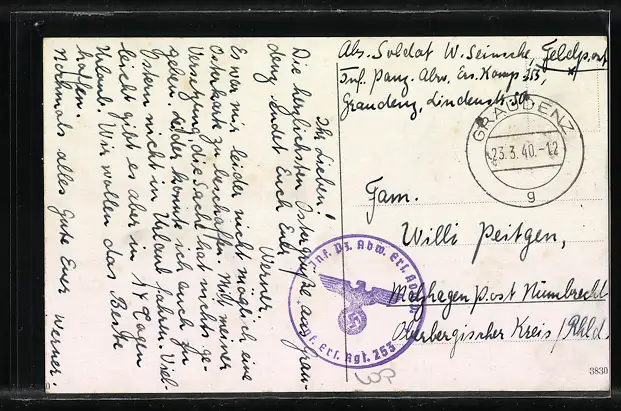 Abs. Soldat W. Seinsche, Feldpost
Inf. Panz. Abw. Ers. Komp. 253,
Graudenz, Lindenstr. 30.
GRAUDENZ
23.3.40.-12
g
Fam.
Willi Peitgen,
Malhagen Post Nümbrecht
Oberbergischer Kreis /Rhld.
Inf. Pz. Abw. Ers. Komp.
Inf. Ers. Rgt. 253
3830
Ihr Lieben!
Die herzlichsten Ostergrüße aus Grau-
denz sendet Euch Euer
Werner.
Es war mir leider nicht möglich eine
Osterkarte zu beschaffen. Mit meiner
Versetzung, die Sache hat nichts ge-
geben. Leider konnte ich auch zu
Ostern nicht in Urlaub fahren. Viel-
leicht gibt es aber in 14 Tagen
Urlaub. Wir wollen das Beste
hoffen.
Nochmals alles Gute Euer Werner.